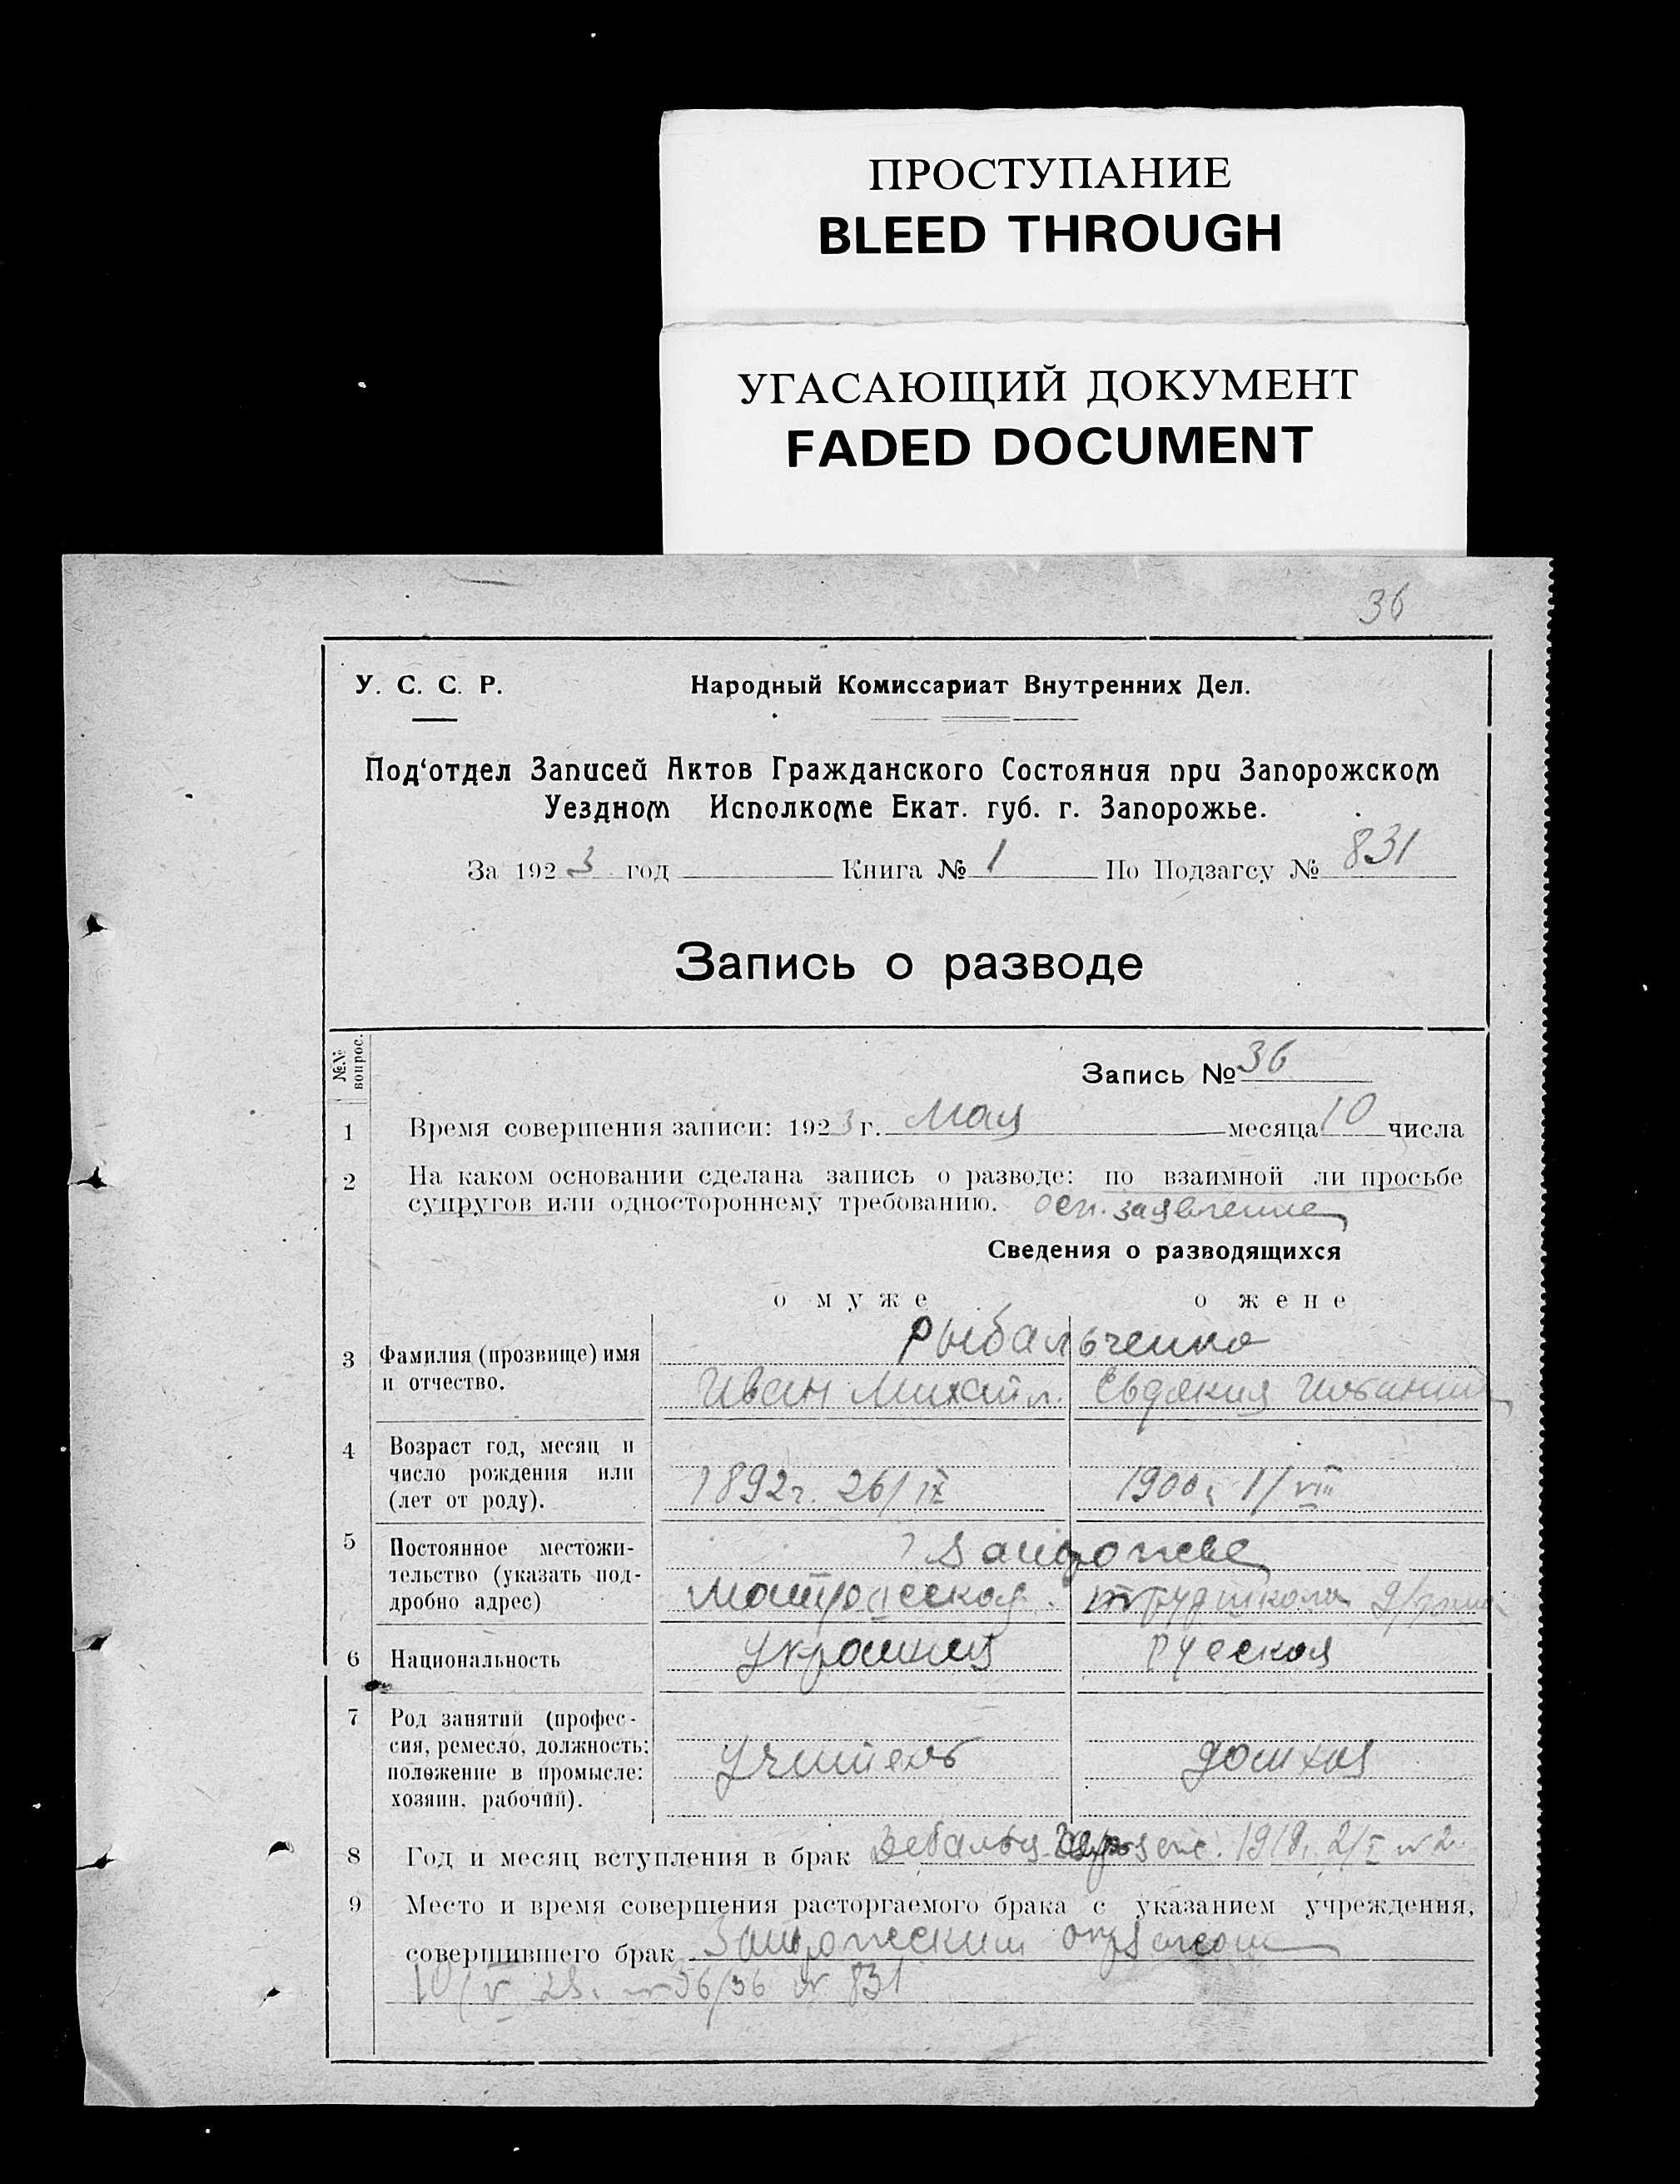 ПРОСТУПАНИЕ
BLEED THROUGH
УГАСАЮЩИЙ ДОКУМЕНТ
FADED DOCUMENT
36
У. С. С. Р. Народный Комиссариат Внутренних Дел.
Под‘отдел Записей Актов Гражданского Состояния при Запорожском
Уездном Исполкоме Екат. губ. г. Запорожье.
За 1923 год Книга № 1 По Подзагсу № 831
Запись о разводе
№№ вопрос.
Запись № 36
1 Время совершения записи: 1923 г. Мая месяца 10 числа
2 На каком основании сделана запись о разводе: по взаимной ли просьбе
супругов или одностороннему требованию. осн. заявление
Сведения о разводящихся
о муже о жене
Рыбальченко
3 Фамилия (прозвище) имя
и отчество.
Иван Михайл. Евдокия
4 Возраст год, месяц и
число рождения или
(лет от роду).
1892г. 26/IX 1900г 1/VIII
5 Постоянное местожи-
тельство (указать под-
дробно адрес)
Запорожье
Матросская трудшкола
6 Национальность украинец русская
7 Род занятий (профес-
сия, ремесло, должность:
положение в промысле:
хозяин, рабочий).
учитель домхоз
8 Год и месяц вступления в брак 1918г. 2/I № 2
9 Место и время совершения расторгаемого брака с указанием учреждения,
совершившего брак Запорожским
10/V 23г. № 36/36 № 831